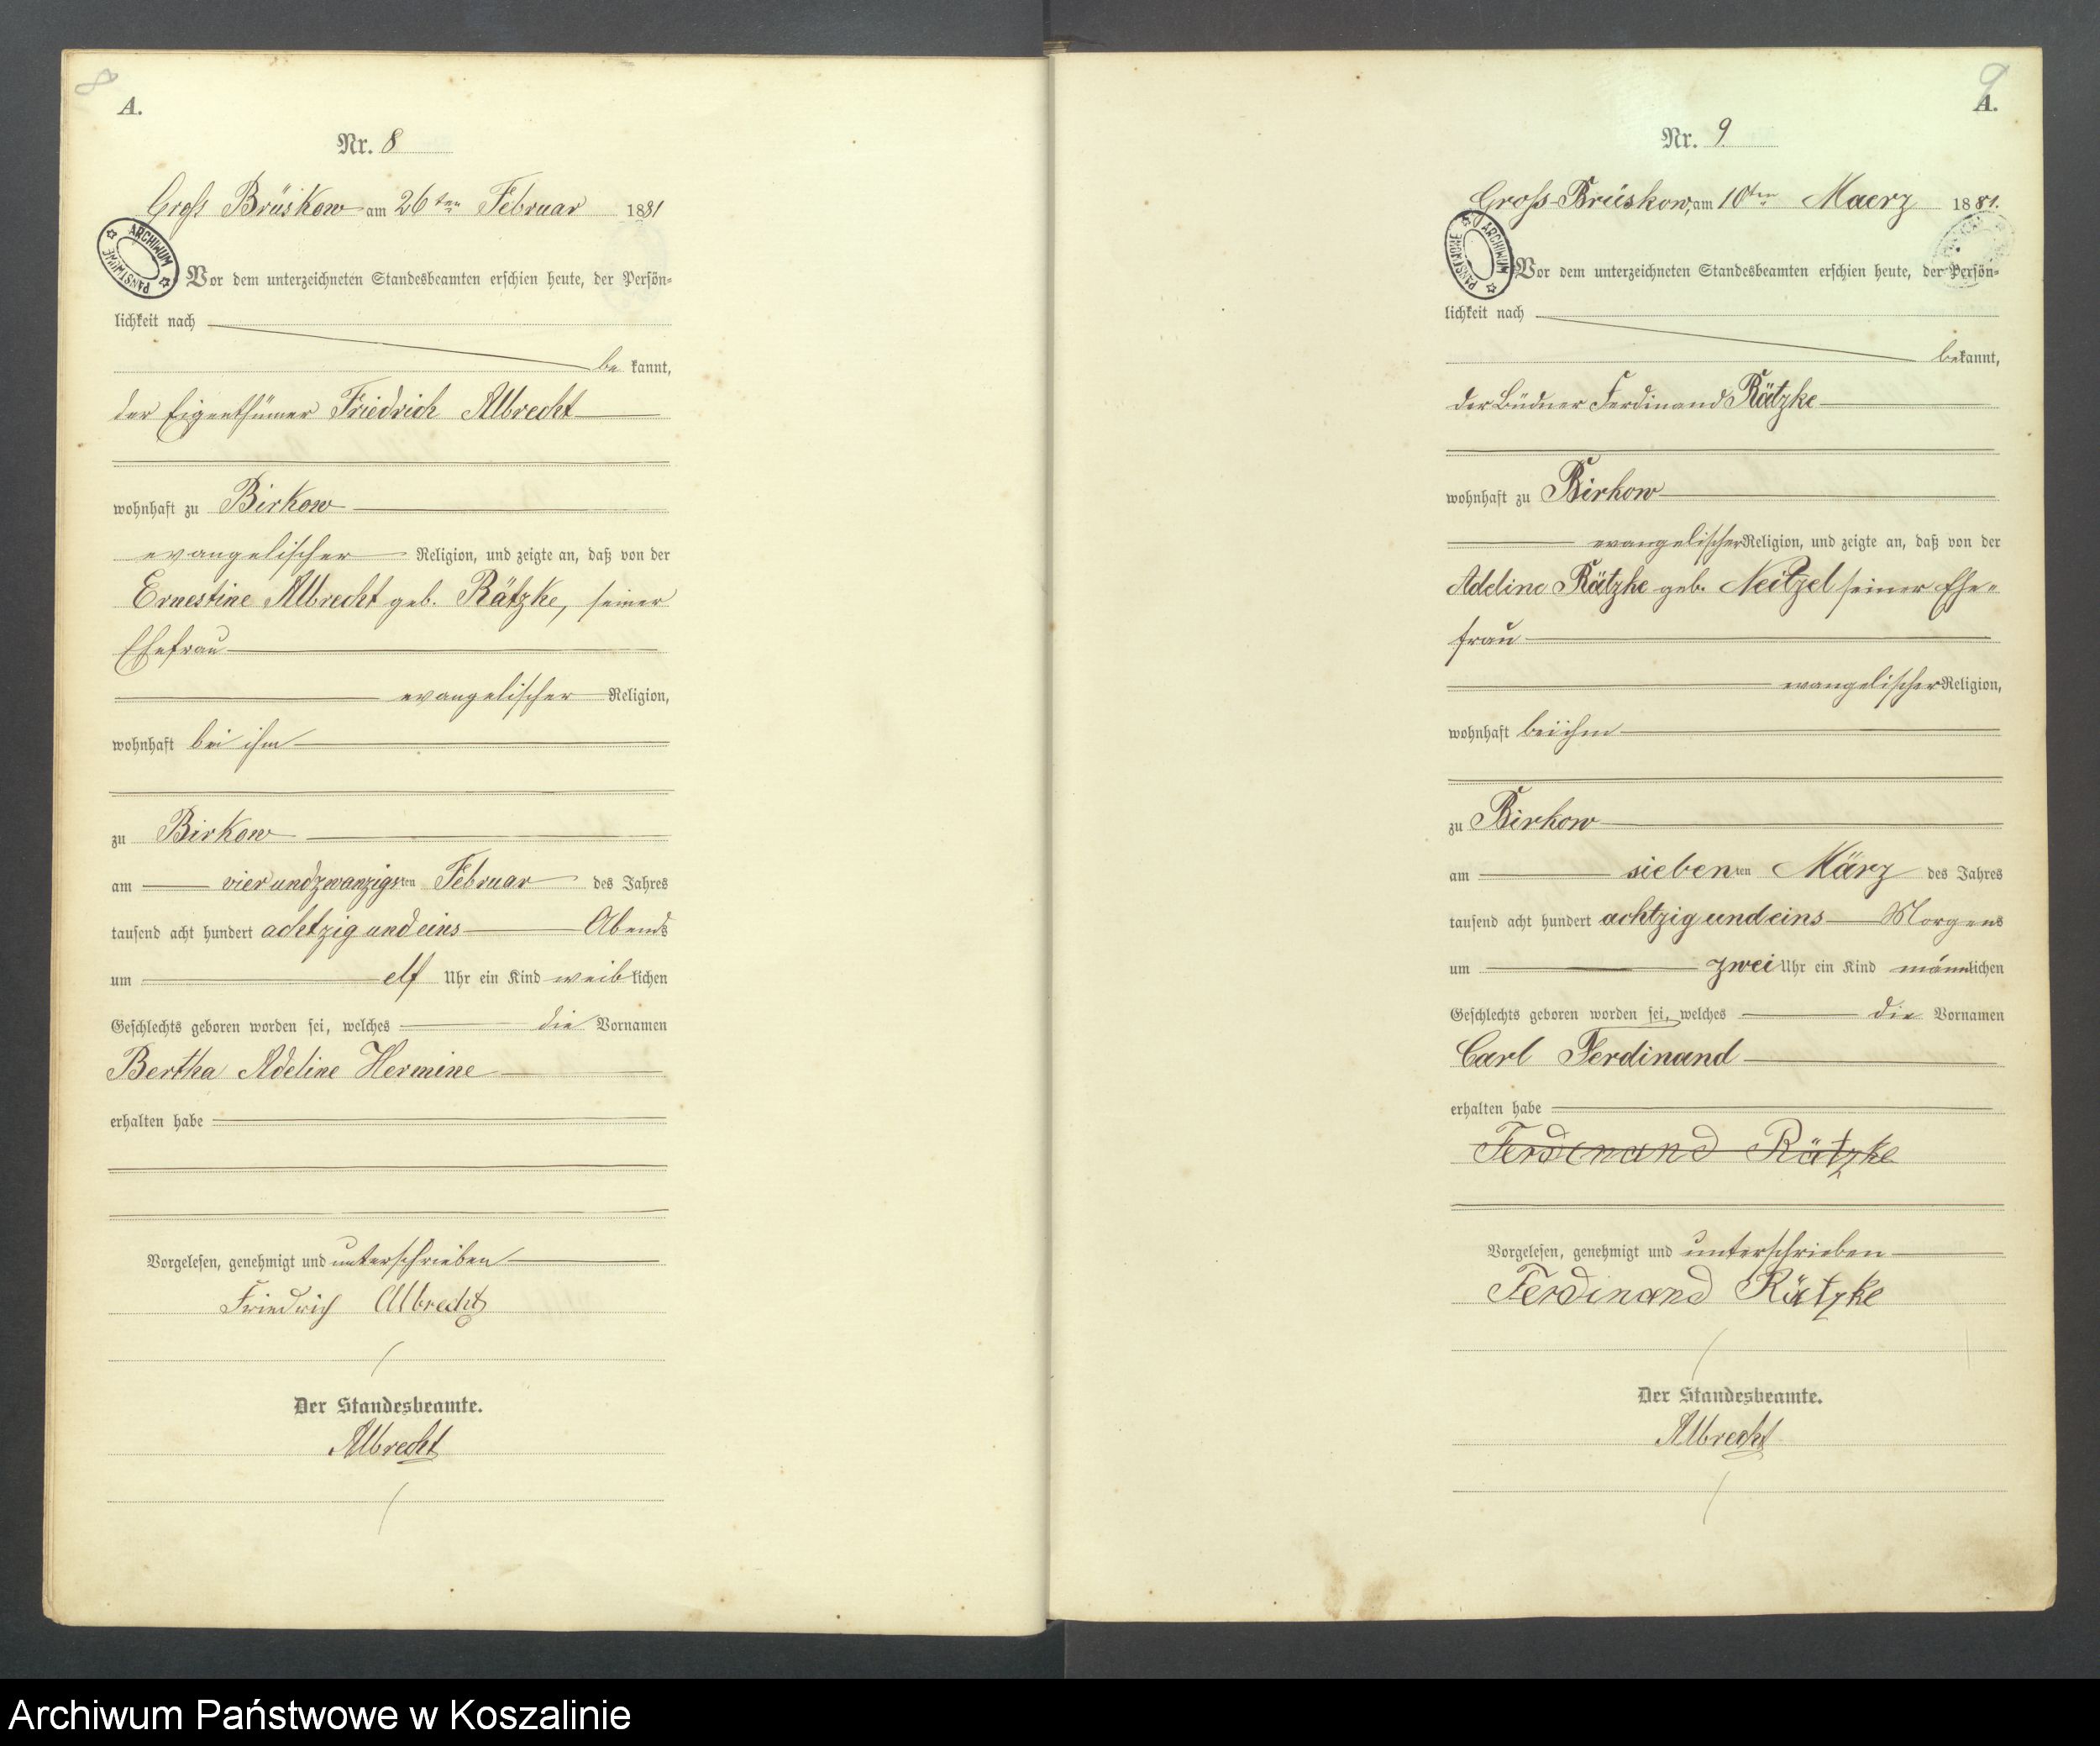 8
A.
Nr. 8
Gross Brüskow am 26ten Februar 1881
ARCHIWUM PAŃSTWOWE
Vor dem unterzeichneten Standesbeamten erschien heute, der Persön-
lichkeit nach
be kannt,
der Eigenthümer Friedrich Albrecht
wohnhaft zu Birkow
evangelischer Religion, und zeigte an, daß von der
Ernestine Albrecht geb. Rätzke, seiner
Ehefrau
evangelischer Religion,
wohnhaft bei ihm
zu Birkow
am vierundzwanzigsten Februar des Jahres
tausend acht hundert achtzig und eins Abends
um elf Uhr ein Kind weiblichen
Geschlechts geboren worden sei, welches die Vornamen
Bertha Adeline Hermine
erhalten habe
Vorgelesen, genehmigt und unterschrieben
Friedrich Albrecht
Der Standesbeamte.
Albrecht
9
A.
Nr. 9.
Gross Brüskow, am 10ten Maerz 1881.
ARCHIWUM PAŃSTWOWE
Vor dem unterzeichneten Standesbeamten erschien heute, der Persön-
lichkeit nach
bekannt,
der Büdner Ferdinand Rätzke
wohnhaft zu Birkow
evangelischer Religion, und zeigte an, daß von der
Adeline Rätzke geb. Neitzel seiner Ehe-
frau
evangelischer Religion,
wohnhaft bei ihm
zu Birkow
am siebenten März des Jahres
tausend acht hundert achtzig und eins Morgens
um zwei Uhr ein Kind männlichen
Geschlechts geboren worden sei, welches die Vornamen
Carl Ferdinand
erhalten habe
Ferdinand Rätzke
Vorgelesen, genehmigt und unterschrieben
Ferdinand Rätzke
Der Standesbeamte.
Albrecht
Archiwum Państwowe w Koszalinie